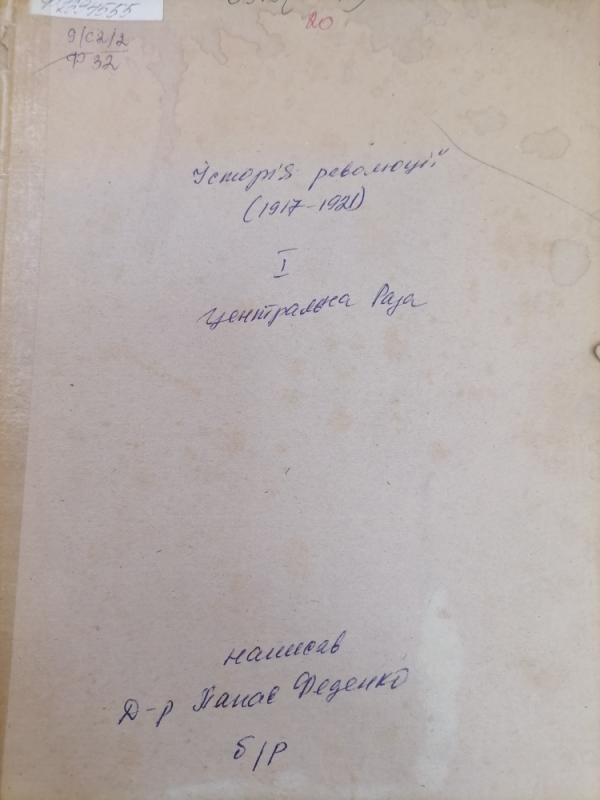 20
9/С2/2
Ф 32
Історія революції
(1917-1921)
I
Центральна Рада
написав
Д-р Панас Феденко
б/р